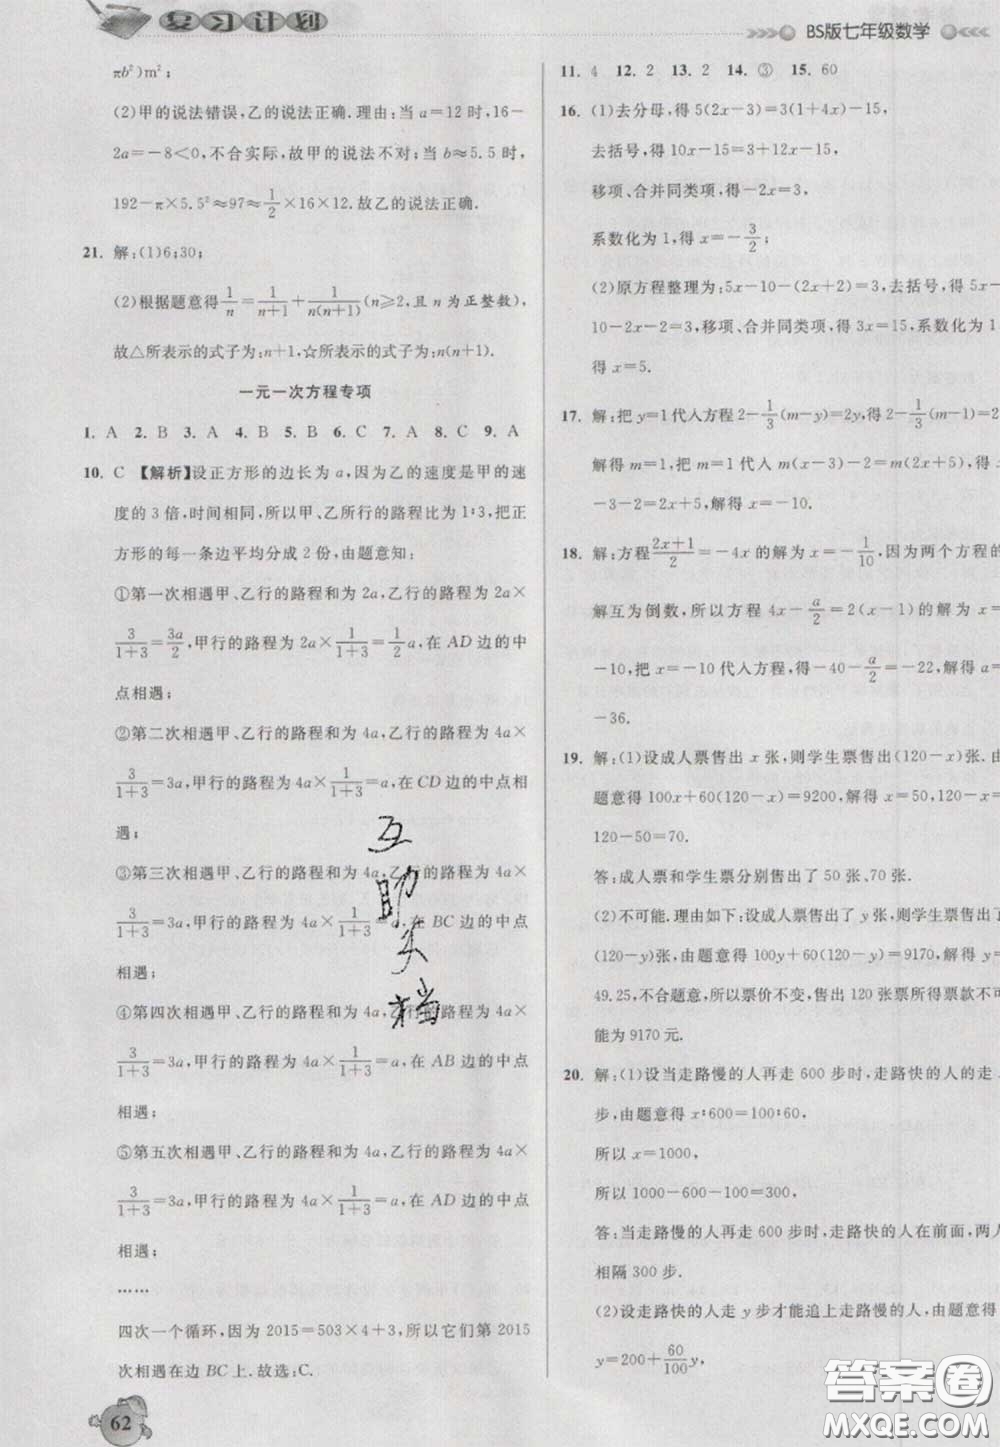 复习计划
BS版七年级数学
πb²)m²;
(2)甲的说法错误,乙的说法正确.理由:当a=12时,16-
2a=-8<0,不合实际,故甲的说法不对;当b≈5.5时,
192-π×5.5²≈97≈1/2×16×12.故乙的说法正确.
21. 解:(1)6;30;
(2)根据题意得1/n=1/(n+1)+1/(n(n+1))(n≥2,且n为正整数),
故△所表示的式子为:n+1,☆所表示的式子为:n(n+1).
一元一次方程专项
1. A 2. B 3. A 4. B 5. B 6. C 7. A 8. C 9. A
10. C 【解析】设正方形的边长为a,因为乙的速度是甲的速
度的3倍,时间相同,所以甲、乙所行的路程比为1∶3,把正
方形的每一条边平均分成2份,由题意知:
①第一次相遇甲、乙行的路程和为2a,乙行的路程为2a×
3/(1+3)=3a/2,甲行的路程为2a×1/(1+3)=1/2a,在AD边的中
点相遇;
②第二次相遇甲、乙行的路程和为4a,乙行的路程为4a×
3/(1+3)=3a,甲行的路程为4a×1/(1+3)=a,在CD边的中点相
遇;
③第三次相遇甲、乙行的路程和为4a,乙行的路程为4a×
3/(1+3)=3a,甲行的路程为4a×1/(1+3)=a,在BC边的中点
相遇;
④第四次相遇甲、乙行的路程和为4a,乙行的路程为4a×
3/(1+3)=3a,甲行的路程为4a×1/(1+3)=a,在AB边的中点
相遇;
⑤第五次相遇甲、乙行的路程和为4a,乙行的路程为4a×
3/(1+3)=3a,甲行的路程为4a×1/(1+3)=a,在AD边的中点
相遇;
……
四次一个循环,因为2015=503×4+3,所以它们第2015
次相遇在边BC上.故选:C.
62
11. 4 12. 2 13. 2 14. ③ 15. 60
16. (1)去分母,得5(2x-3)=3(1+4x)-15,
去括号,得10x-15=3+12x-15,
移项、合并同类项,得-2x=3,
系数化为1,得x=-3/2;
(2)原方程整理为:5x-10-(2x+2)=3,去括号,得5x-
10-2x-2=3,移项、合并同类项,得3x=15,系数化为1
得x=5.
17. 解:把y=1代入方程2-1/3(m-y)=2y,得2-1/3(m-1)=2
解得m=1,把m=1代入m(x-3)-2=m(2x+5),得
-3-2=2x+5,解得x=-10.
18. 解:方程(2x+1)/2=-4x的解为x=-1/10,因为两个方程的
解互为倒数,所以方程4x-a/2=2(x-1)的解为x=
-10,把x=-10代入方程,得-40-a/2=-22,解得a=
-36.
19. 解:(1)设成人票售出x张,则学生票售出(120-x)张.由
题意得100x+60(120-x)=9200,解得x=50,120-x=
120-50=70.
答:成人票和学生票分别售出了50张、70张.
(2)不可能.理由如下:设成人票售出了y张,则学生票售出
(120-y)张,由题意得100y+60(120-y)=9170,解得y=
49.25,不合题意,所以票价不变,售出120张票所得票款不可
能为9170元.
20. 解:(1)设当走路慢的人再走600步时,走路快的人的走
步,由题意得x∶600=100∶60,
所以x=1000,
所以1000-600-100=300,
答:当走路慢的人再走600步时,走路快的人在前面,两人
相隔300步.
(2)设走路快的人走y步才能追上走路慢的人,由题意得
y=200+60/100 y,
互
助
文
档
答案圈
MXQE.COM